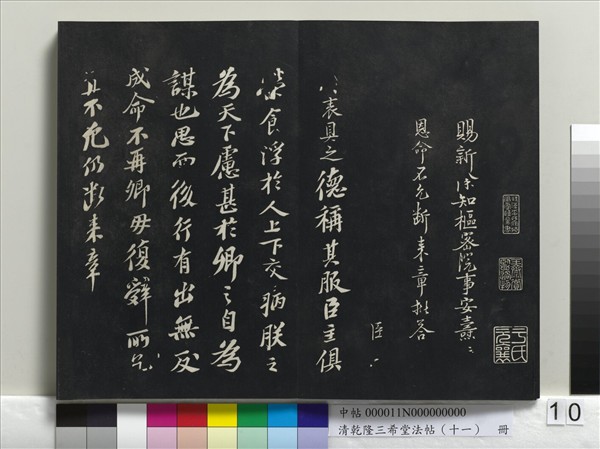 賜新除知樞密院事安燾
恩命不允斷來章批答
臣
省表具之德稱其服臣主俱
榮食浮於人上下交病朕之
為天下慮甚於卿之自為
謀也思而後行有出無反
成命不再卿毋復辭所乞
宜不允仍斷來章
中帖 000011N000000000
清乾隆三希堂法帖（十一） 冊
10